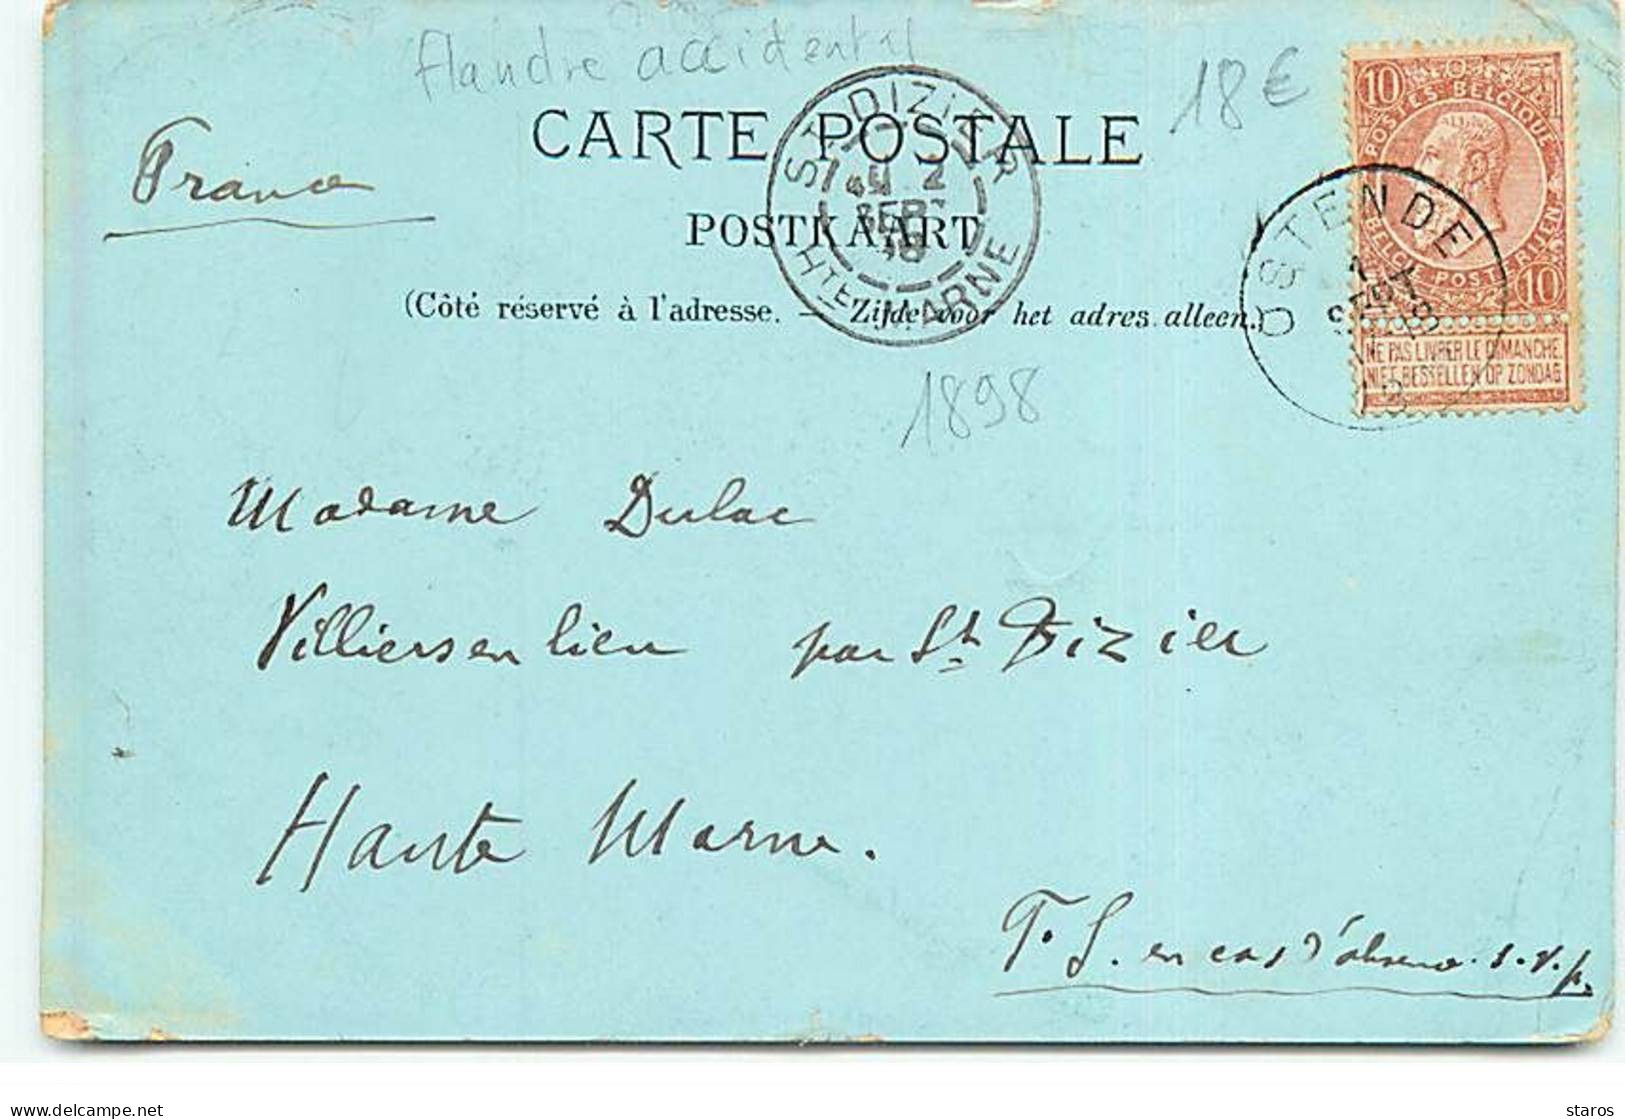 flandre accidental
18€
CARTE POSTALE
France
POSTKAART
(Côté réservé à l'adresse. — Zijde voor het adres alleen.)
ST DIZIER
2
SEPT
98
HTE MARNE
10 10
POSTES BELGIQUE
BELGIE POSTERIJEN
10
NE PAS LIVRER LE DIMANCHE
NIET BESTELLEN OP ZONDAG
OSTENDE
1
SEPT
1898
Madame Dulac
Villiers en lieu par St Dizier
Haute Marne.
F. S. en cas d'absence s.v.p.
delcampe.net
staros